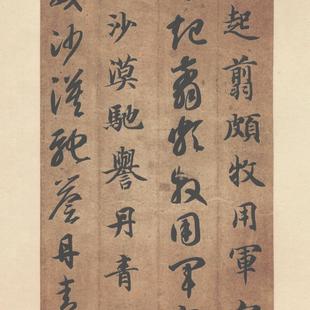 起翦頗牧用軍
起翦頗牧用軍
沙漠馳譽丹青
沙漠馳譽丹青